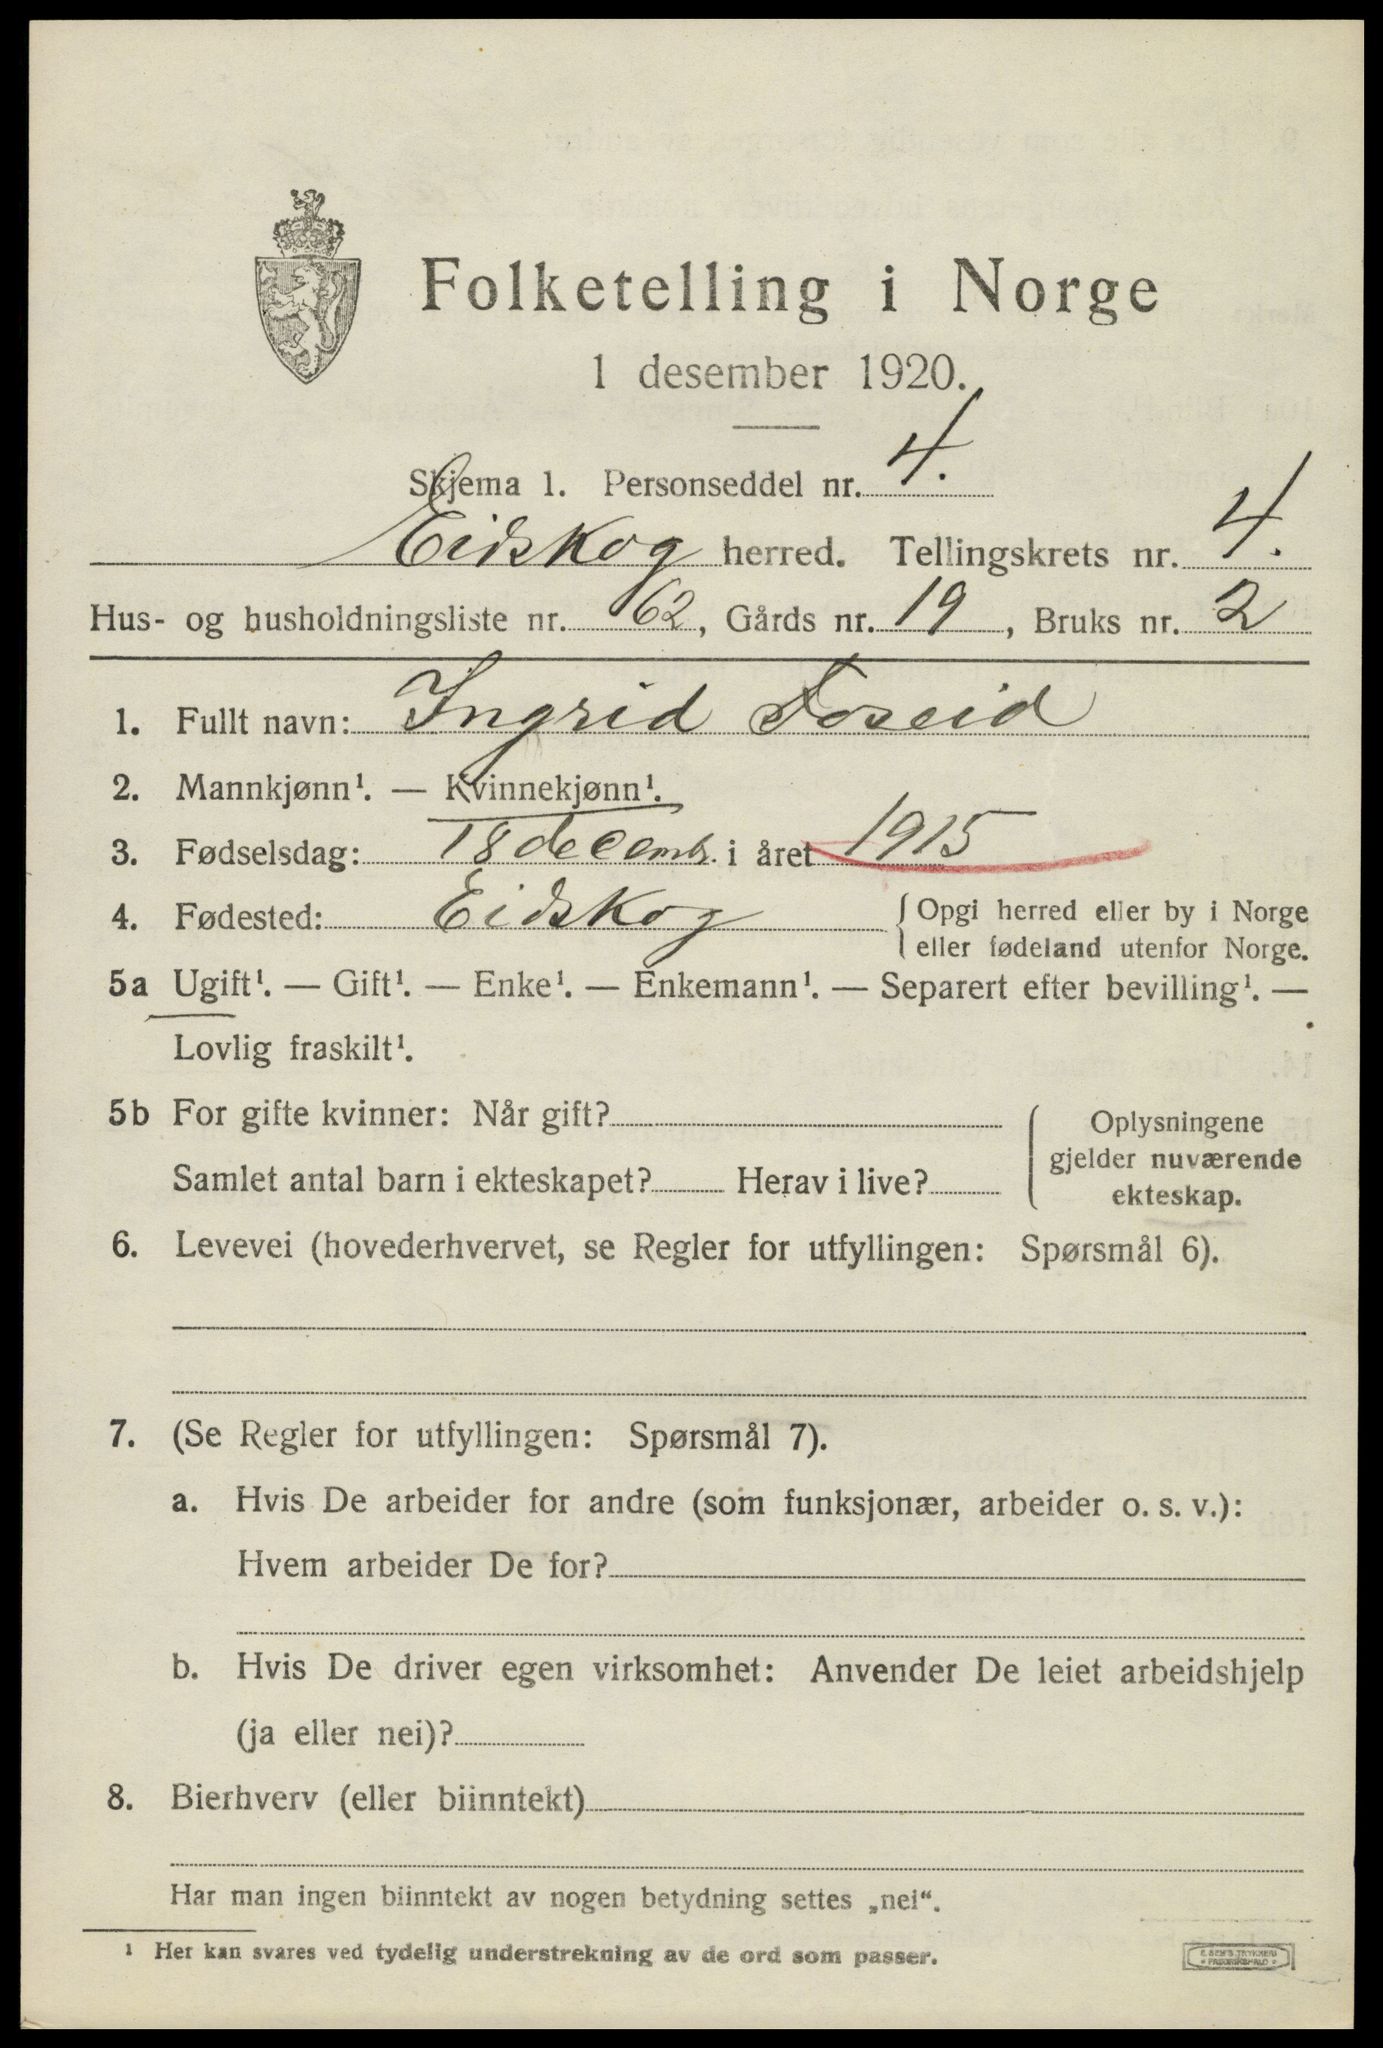 Folketelling i Norge
1 desember 1920.
Skjema 1. Personseddel nr. 4.
Eidskog herred. Tellingskrets nr. 4.
Hus- og husholdningsliste nr. 62, Gårds nr. 19, Bruks nr. 2
1. Fullt navn: Ingrid Foseid
2. Mannkjønn¹. — Kvinnekjønn¹.
3. Fødselsdag: 18 decembr. i året 1915
4. Fødested: Eidskog { Opgi herred eller by i Norge
eller fødeland utenfor Norge.
5a Ugift¹. — Gift¹. — Enke¹. — Enkemann¹. — Separert efter bevilling¹. —
Lovlig fraskilt¹.
5b For gifte kvinner: Når gift?
Samlet antal barn i ekteskapet? Herav i live?
Oplysningene
gjelder nuværende
ekteskap.
6. Levevei (hovederhvervet, se Regler for utfyllingen: Spørsmål 6).
7. (Se Regler for utfyllingen: Spørsmål 7).
a. Hvis De arbeider for andre (som funksjonær, arbeider o. s. v.):
Hvem arbeider De for?
b. Hvis De driver egen virksomhet: Anvender De leiet arbeidshjelp
(ja eller nei)?
8. Bierhverv (eller biinntekt)
Har man ingen biinntekt av nogen betydning settes „nei“.
¹ Her kan svares ved tydelig understrekning av de ord som passer.
E. SEM'S TRYKKERI
FREDRIKSHALD